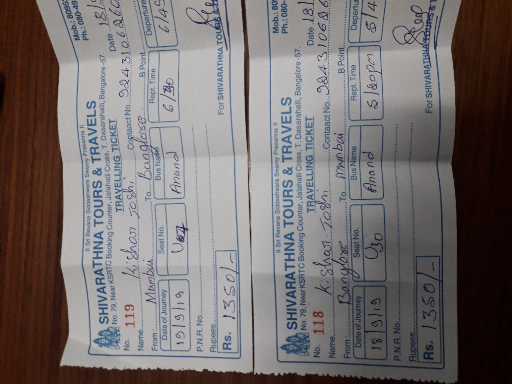 Mob.: 805
Ph.: 080-49
ll Sri Revana Siddeshwara Swamy Prasanna ll
SHIVARATHNA TOURS & TRAVELS
No. 79, Near KSRTC Booking Counter, Jalahalli Cross, T. Dasarahalli, Bangalore -57.
TRAVELLING TICKET
No. 119
Date 18/
Name Kishan Joshi Contact No. 9243106260
From Mumbai To Banglore B Point
Date of Journey Seat No. Bus Name Rept. Time Departure
19/9/19 Anand 6/30 6/45
P.N.R. No.
Rupees
Rs. 1350/-
For SHIVARATHNA TOURS &
Mob.: 805
Ph.: 080-
ll Sri Revana Siddeshwara Swamy Prasanna ll
SHIVARATHNA TOURS & TRAVELS
No. 79, Near KSRTC Booking Counter, Jalahalli Cross, T. Dasarahalli, Bangalore -57.
TRAVELLING TICKET
No. 118
Date 18/
Name Kishan Joshi Contact No. 9243106260
From Banglore To Mumbai B Point
Date of Journey Seat No. Bus Name Rept. Time Departure
18/9/19 U30 Anand 5/30pm 5/4
P.N.R. No.
Rupees
Rs. 1350/-
For SHIVARATHNA TOURS &